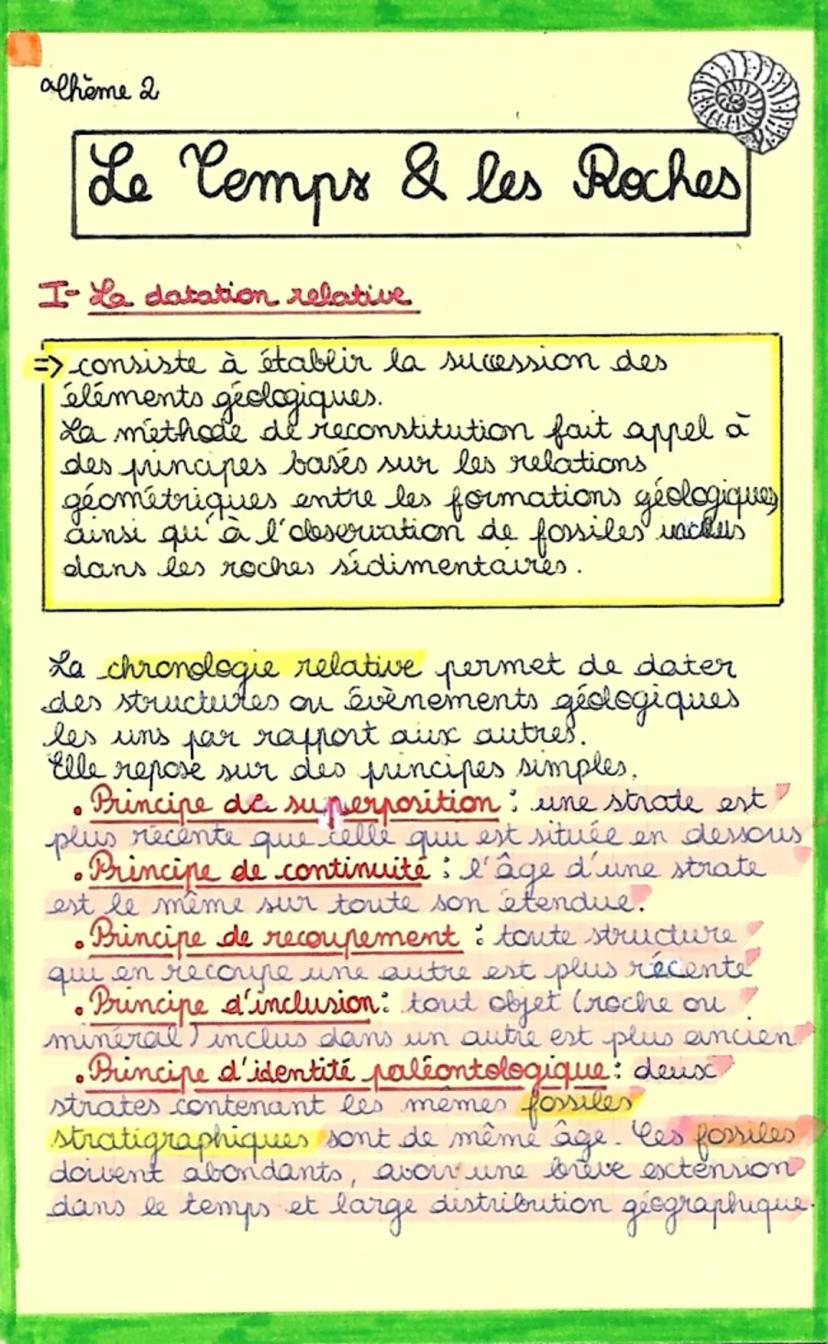 Thème 2
Le Temps & les Roches
I- La datation relative
=> consiste à établir la sucession des
éléments géologiques.
La méthode de reconstitution fait appel à
des principes basés sur les relations
géométriques entre les formations géologiques
ainsi qu'à l'observation de fossiles inclus
dans les roches sédimentaires.
La chronologie relative permet de dater
des structures ou évènements géologiques
les uns par rapport aux autres.
Elle repose sur des principes simples.
• Principe de superposition : une strate est
plus récente que celle qui est située en dessous
• Principe de continuité : l'âge d'une strate
est le même sur toute son étendue.
• Principe de recoupement : toute structure
qui en recoupe une autre est plus récente
• Principe d'inclusion : tout objet (roche ou
minéral) inclus dans un autre est plus ancien
• Principe d'identité paléontologique : deux
strates contenant les mêmes fossiles
stratigraphiques sont de même âge. Ces fossiles
doivent abondants, avoir une brève extension
dans le temps et large distribution géographique.